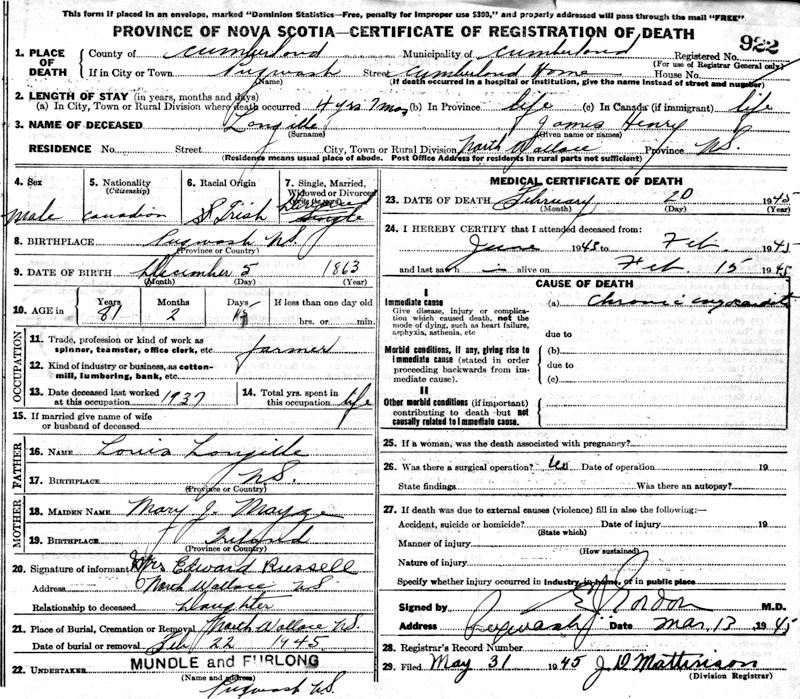 This form if placed in an envelope, marked "Dominion Statistics—Free, penalty for improper use $300," and properly addressed will pass through the mail "FREE"
PROVINCE OF NOVA SCOTIA—CERTIFICATE OF REGISTRATION OF DEATH
922
1. PLACE OF DEATH
County of Cumberland Municipality of Cumberland Registered No.
(For use of Registrar General only)
If in City or Town Pugwash Street Cumberland Home House No.
(Name) (If death occurred in a hospital or institution, give the name instead of street and number)
2. LENGTH OF STAY (in years, months and days)
(a) In City, Town or Rural Division where death occurred 4 yrs 7 mos (b) In Province life (c) In Canada (if immigrant) life
3. NAME OF DECEASED Longille James Henry
(Surname) (Given name or names)
RESIDENCE No. Street City, Town or Rural Division North Wallace Province N.S.
(Residence means usual place of abode. Post Office Address for residents in rural parts not sufficient)
4. Sex male
5. Nationality (Citizenship) Canadian
6. Racial Origin Irish
7. Single, Married, Widowed or Divorced (Write the word) Single
8. BIRTHPLACE Pugwash N.S.
(Province or Country)
9. DATE OF BIRTH December 5 1863
(Month) (Day) (Year)
10. AGE in Years 81 Months 2 Days 15 If less than one day old
hrs. or min.
OCCUPATION
11. Trade, profession or kind of work as spinner, teamster, office clerk, etc. farmer
12. Kind of industry or business, as cotton-mill, lumbering, bank, etc.
13. Date deceased last worked at this occupation 1937
14. Total yrs. spent in this occupation life
15. If married give name of wife or husband of deceased
FATHER
16. NAME Louis Longille
17. BIRTHPLACE N.S.
(Province or Country)
MOTHER
18. MAIDEN NAME Mary J.
19. BIRTHPLACE Ireland
(Province or Country)
20. Signature of informant Mrs Edward Russell
Address North Wallace N.S.
Relationship to deceased Daughter
21. Place of Burial, Cremation or Removal North Wallace N.S.
Date of burial or removal Feb 22 1945
22. UNDERTAKER MUNDLE and FURLONG
(Name and address)
Pugwash N.S.
MEDICAL CERTIFICATE OF DEATH
23. DATE OF DEATH February 20 1945
(Month) (Day) (Year)
24. I HEREBY CERTIFY that I attended deceased from:
June 1943 to Feb 1945
and last saw h i alive on Feb. 15 1945
CAUSE OF DEATH
I
Immediate cause
Give disease, injury or complication which caused death, not the mode of dying, such as heart failure, asphyxia, asthenia, etc
(a) Chronic myocarditis
due to
Morbid conditions, if any, giving rise to immediate cause (stated in order proceeding backwards from immediate cause)
(b)
due to
(c)
II
Other morbid conditions (if important) contributing to death but not causally related to I immediate cause.
25. If a woman, was the death associated with pregnancy?
26. Was there a surgical operation? Date of operation 19
State findings Was there an autopsy?
27. If death was due to external causes (violence) fill in also the following:—
Accident, suicide or homicide? Date of injury 19
(State which)
Manner of injury
(How sustained)
Nature of injury
Specify whether injury occurred in industry, in home, or in public place
Signed by Gordon M.D.
Address Pugwash Date Mar. 13 1945
28. Registrar's Record Number
29. Filed May 31 1945 J. D. Mattinson
(Division Registrar)